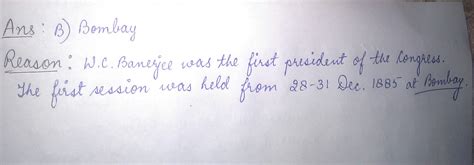 Ans : B) Bombay
Reason : W.C. Banerjee was the first president of the Congress.
The first session was held from 28-31 Dec. 1885 at Bombay.